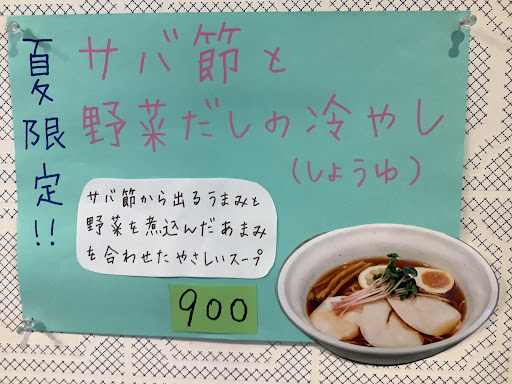 夏限定!!
サバ節と
野菜だしの冷やし
(しょうゆ)
サバ節から出るうまみと
野菜を煮込んだあまみ
を合わせたやさしいスープ
900